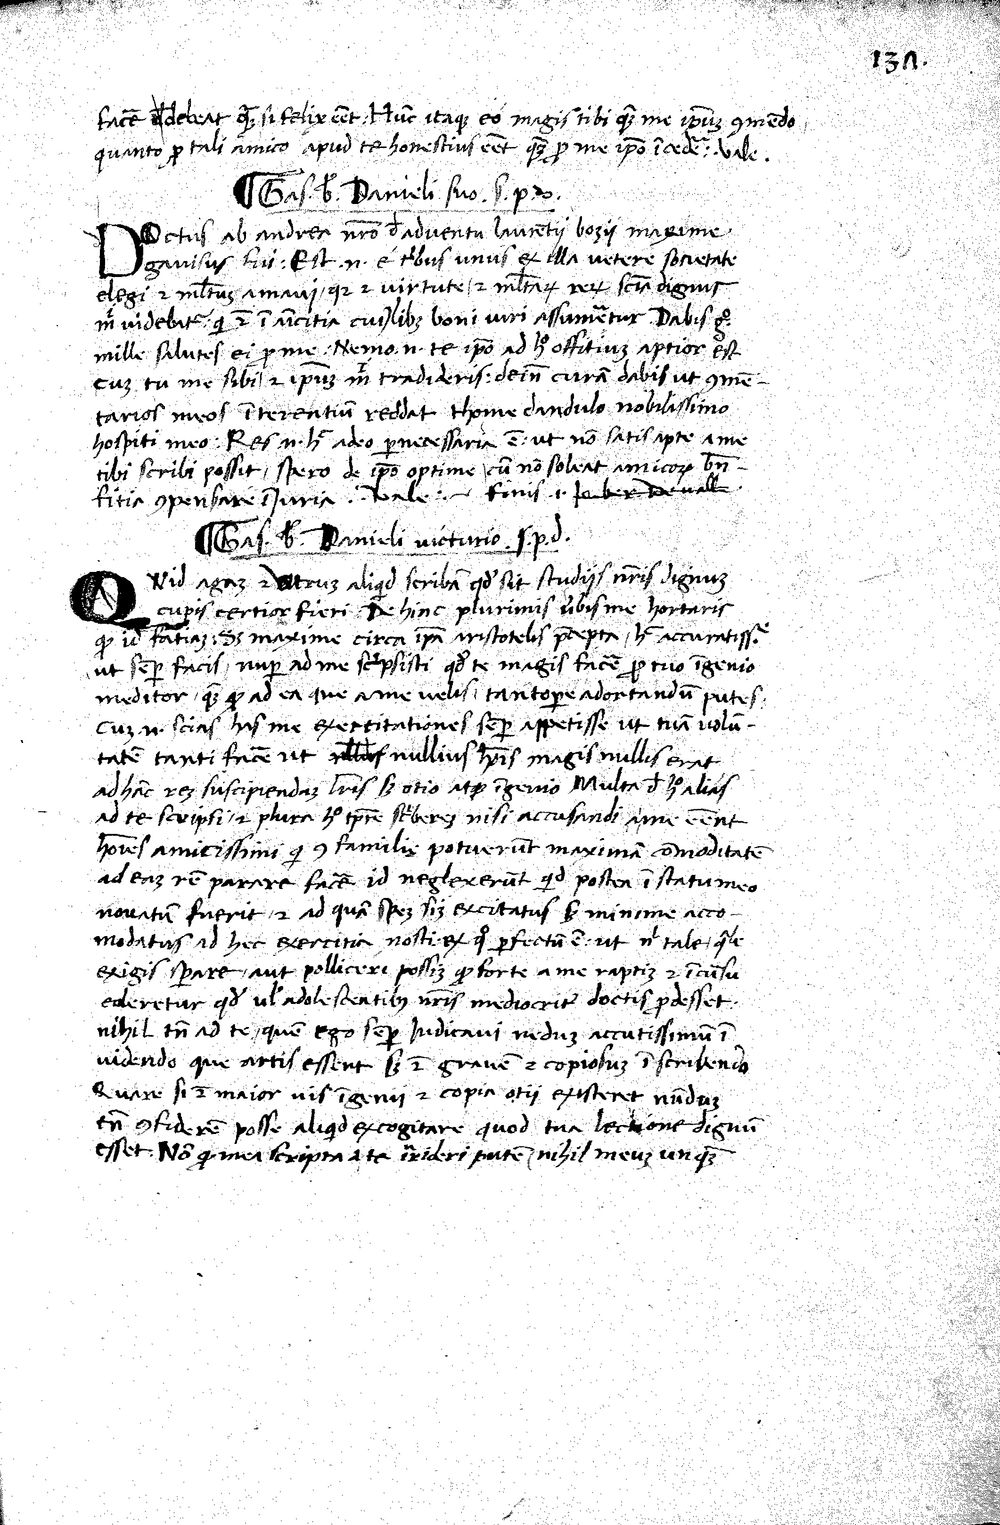 134.
facē debeat qȝ si felix eēt: Hūc itaqꝫ eo magis tibi qȝ me ip̄uꝫ ꝯmēdo
quanto ꝓ tali amico apud te honestius eēt qȝ ꝓ me ip̄o īcede: Vale.
¶ Gas. b̄. Danieli suo. S. p. d.
DOctus ab andrea nr̄o d̄ adventu laurētij bozij maxime
gavisus fui: Est .n. é tribus unus ex illa vetere societate
elegi ⁊ ml̄tuꝫ amavi, qꝛ ⁊ virtute, ⁊ ml̄taꝝ reꝝ sciā dignus
m̄ videbat᷑: qi ⁊ ī aīcitia cuiꝯlibꝫ boni viri assumēt᷑ur Dabis gͦ
mille salutes ei ꝓ me: Nemo .n. te ip̄o ad hͦ offitiuꝫ aptior est
cuꝫ tu me sibi, ⁊ ip̄uꝫ m̄ tradideris: dein̄ curā dabis ut ꝯmē-
tarios meos ī terentiū reddat thome dandulo nobilissimo
hospiti meo: Res .n. h̄ adeo ꝑnecessaria ē: ut nō satis apte a me
tibi scribi possit, spero de ip̄o optime, cū nō soleat amicoꝝ bn̄-
fitia ꝯpensare īiuria: Vale: ~ Finis
¶ Gas. b̄. Danieli victurio. S. p. d.
QUid agaꝫ ⁊ utruꝫ aliqid scribā qd̄ sit studijs nr̄is dignuꝫ
cupis certior fieri: De hinc plurimis v̄bis me hortaris
qꝫ id fatiaꝫ: Sꝫ maxime circa ip̄a aristotelis p̄cepta, h̄ accuratissᵉ
ut semꝑ facis, nuꝑ ad me sc̄psisti qd̄ te magis facē ꝓ tuo īgenio
meditor, qȝ qꝫ ad ea que a me velis, tantoꝑe adortandū putes:
Cuꝫ .n. scias has me exercitationes semꝑ appetisse ut tuā volū-
tatē tanti facē ut nullius hōis magis nullis erat
ad hāc reꝫ suscipiendaꝫ lr̄is sꝫ otio atqꝫ īgenio Multa d̄ hͦ alias
ad te scripsi, ⁊ plura hͦ tp̄re sc̄bereꝫ nisi accusandi a me eēnt
hoīes amicissimi qi ꝯ familie potuerūt maximā comoditatē
ad eaꝫ rē parare facē id neglexerūt qid postea ī statu meo
novatū fuerit, ⁊ ad quā speꝫ siꝫ excitatus sꝫ minime acco-
modatus ad hec exercitia nosti: ex qͦ ꝑfectū ē: ut nl̄ tale, qle
exigis sperare, aut polliceri possiꝫ qꝫ forte a me raptiꝫ ⁊ īcursu
ederetur qd̄ vl̄ adolescentibꝫ nr̄is mediocrit᷑ doctis ꝓdesset:
nihil tn̄ ad te, quē ego semꝑ Judicavi neduꝫ accutissimū ī
videndo que artis essent sꝫ ⁊ gravē ⁊ copiosuꝫ ī scribendo
Quare si ⁊ maior vis īgenij ⁊ copia otij existeret nūduꝫ
tn̄ ꝯfiderē posse aliqid excogitare quod tua lectione dignū
esset: Nō qꝫ mea scripta a te irrideri putē, nihil meuꝫ unqȝ